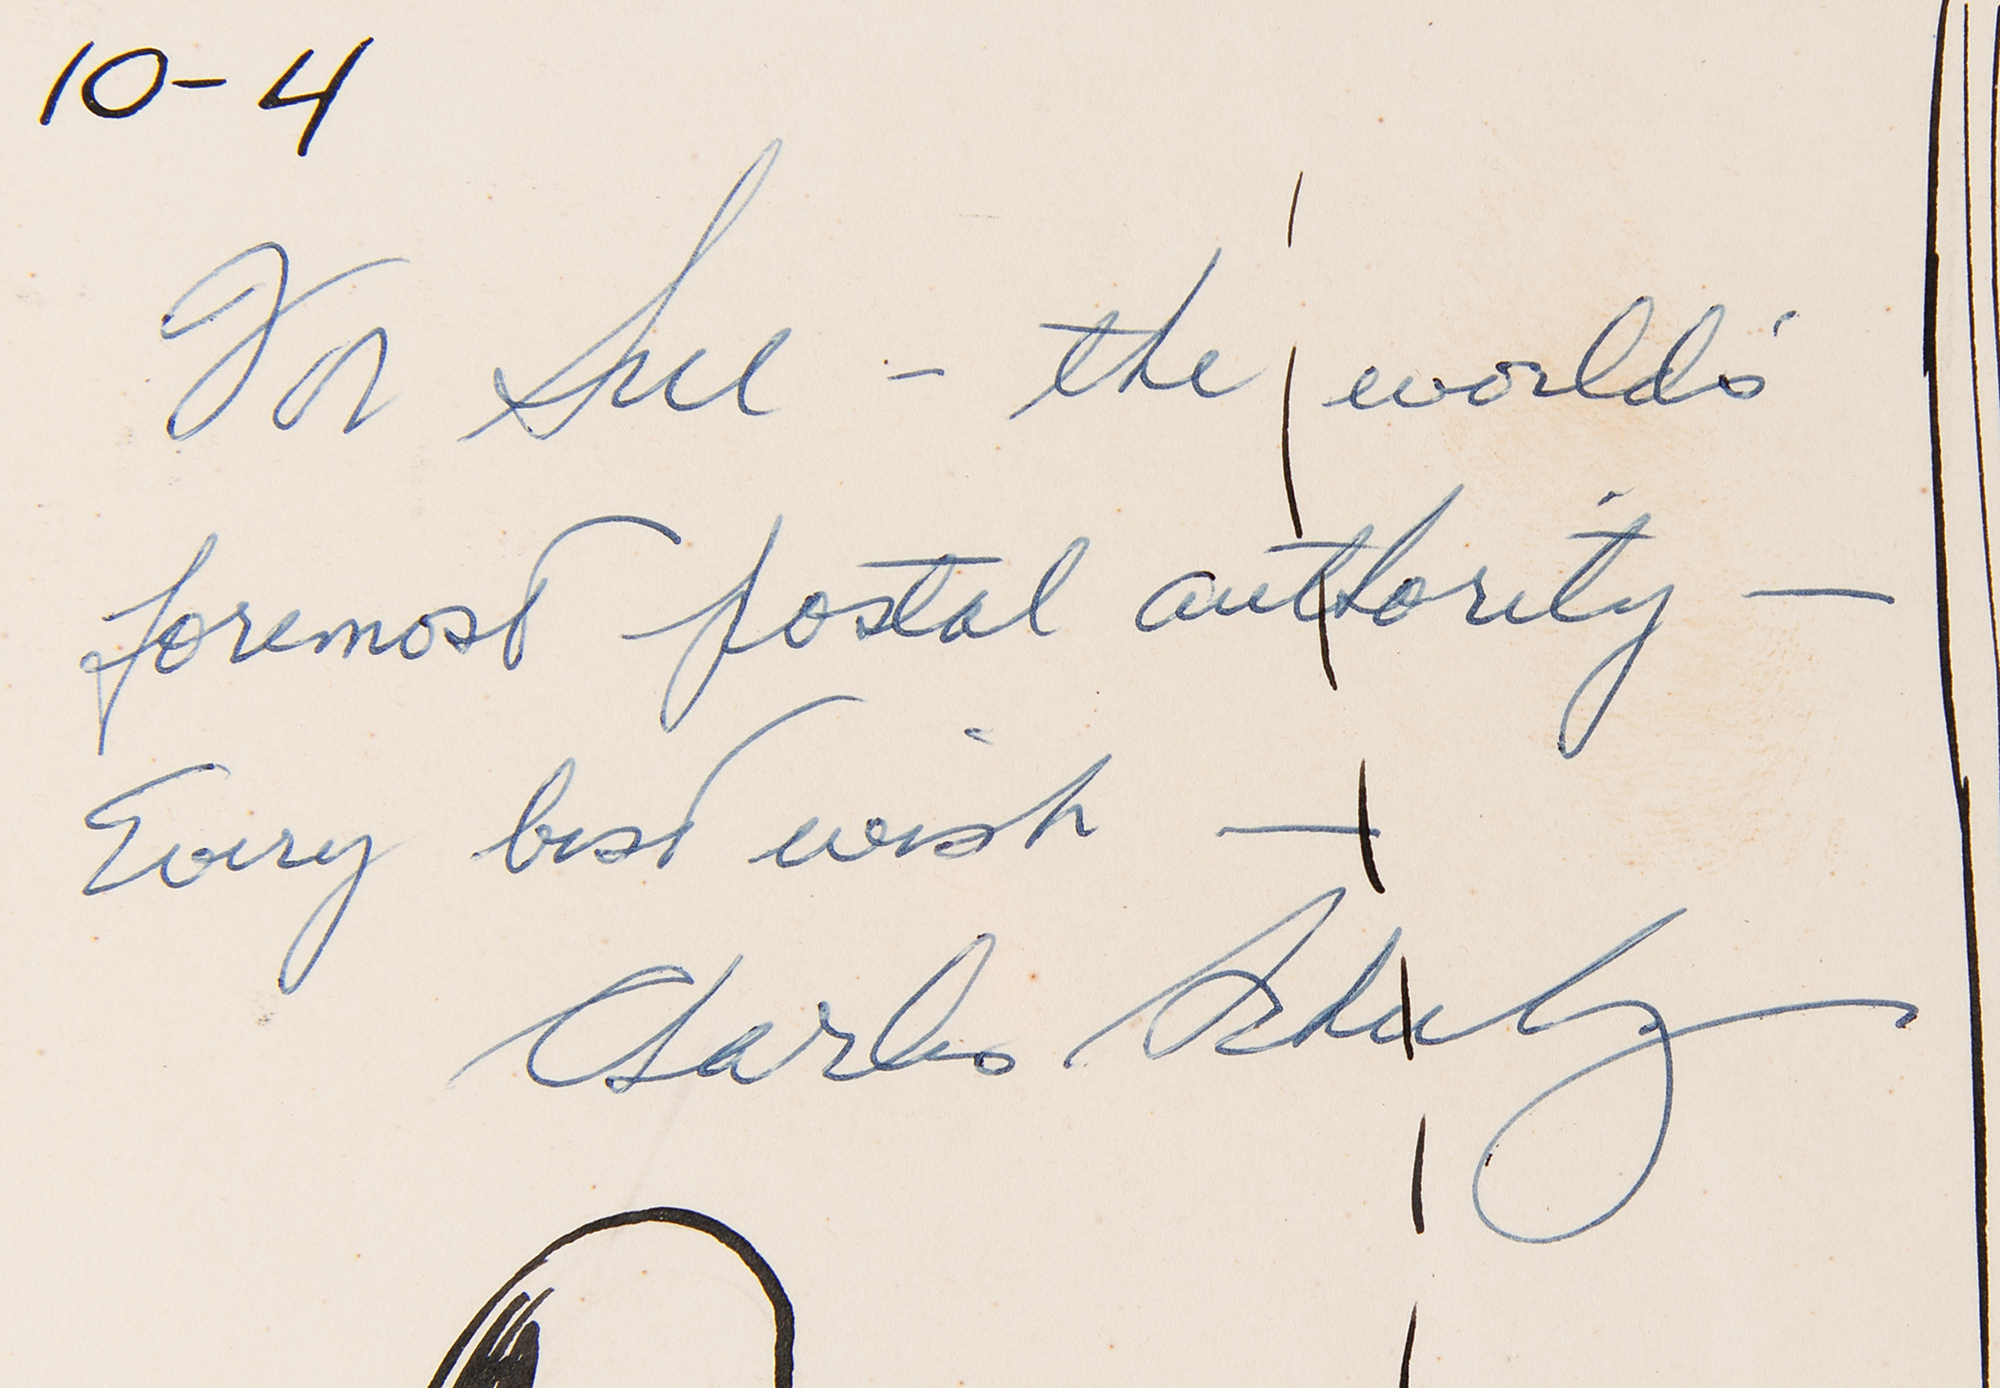 10-4
For Sue - the world's
foremost postal authority —
Every best wish —
Charles Schulz